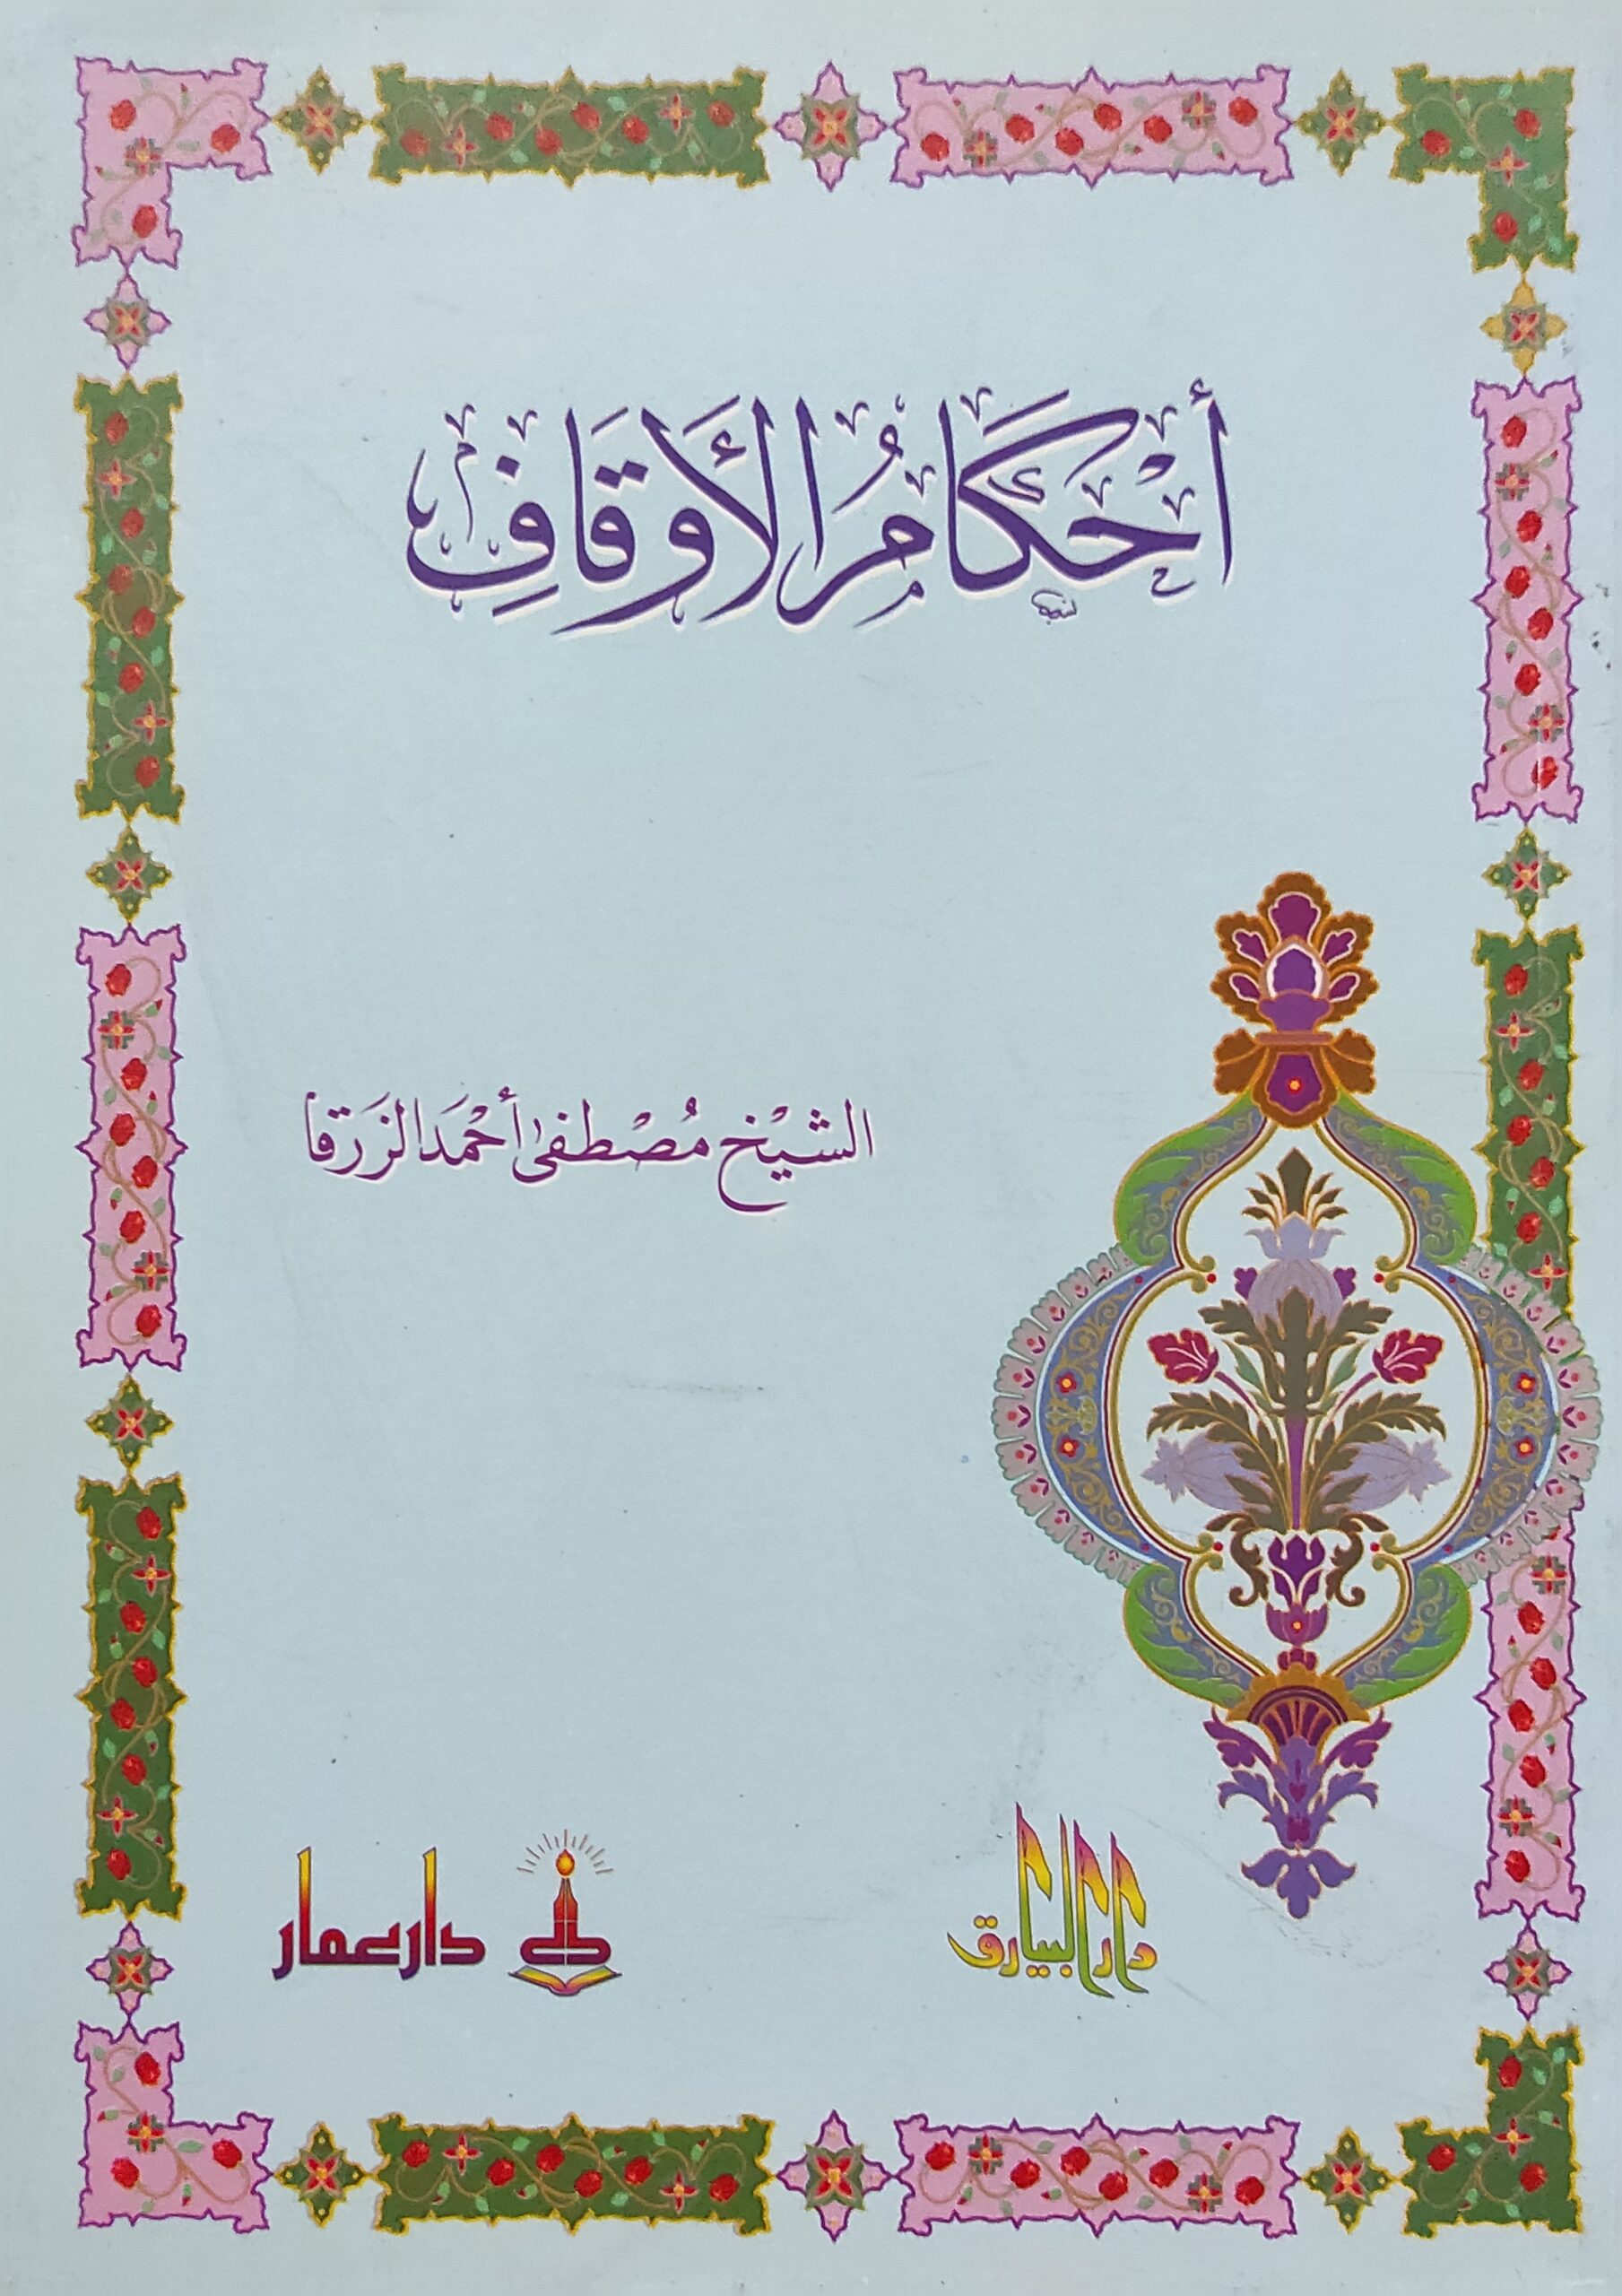 أَحْكَامُ الأَوقَافِ
الشيْخ مُصْطفىٰ أحْمَد الزَرقا
دار البيارق
دار عمار